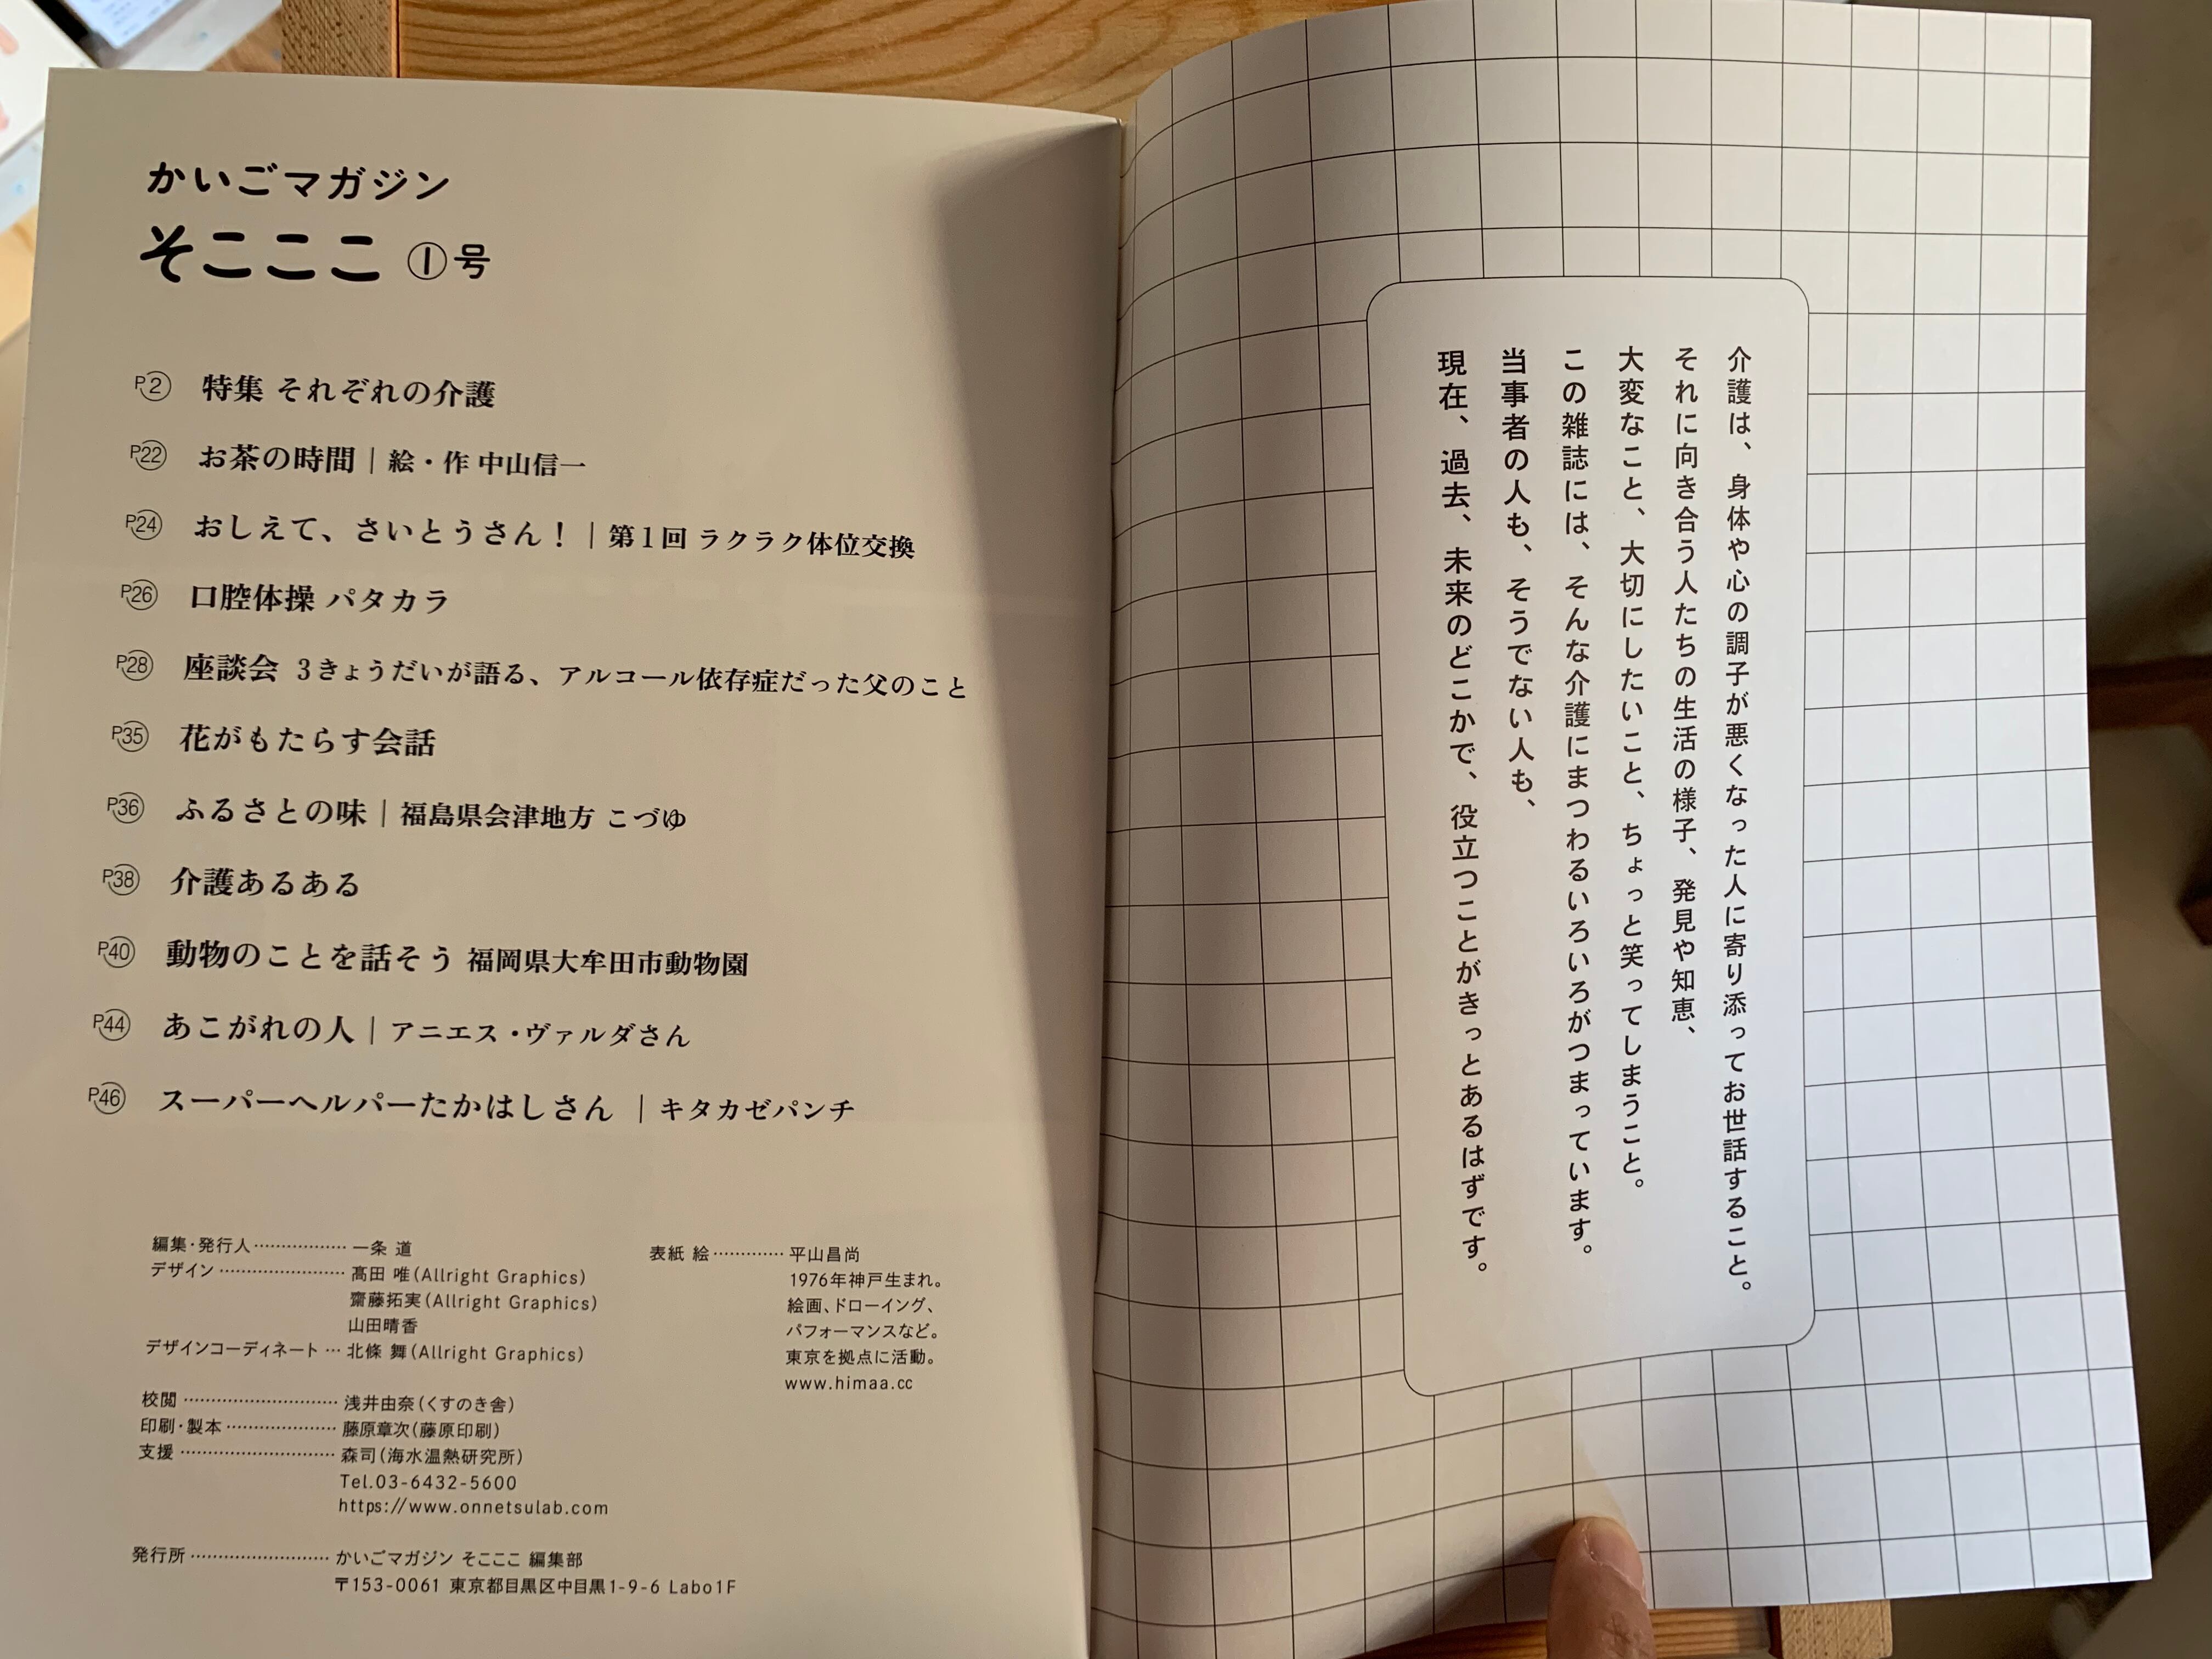 かいごマガジン
そこここ ①号
P2 特集 それぞれの介護
P22 お茶の時間｜絵・作 中山信一
P24 おしえて、さいとうさん！｜第1回 ラクラク体位交換
P26 口腔体操 パタカラ
P28 座談会 3きょうだいが語る、アルコール依存症だった父のこと
P35 花がもたらす会話
P36 ふるさとの味｜福島県会津地方 こづゆ
P38 介護あるある
P40 動物のことを話そう 福岡県大牟田市動物園
P44 あこがれの人｜アニエス・ヴァルダさん
P46 スーパーヘルパーたかはしさん｜キタカゼパンチ
編集・発行人……………… 一条 道
デザイン…………………… 髙田 唯（Allright Graphics）
齋藤拓実（Allright Graphics）
山田晴香
デザインコーディネート… 北條 舞（Allright Graphics）
校閲………………………… 浅井由奈（くすのき舎）
印刷・製本………………… 藤原章次（藤原印刷）
支援………………………… 森司（海水温熱研究所）
Tel.03-6432-5600
https://www.onnetsulab.com
発行所……………………… かいごマガジン そこここ 編集部
〒153-0061 東京都目黒区中目黒1-9-6 Labo1F
表紙 絵…………… 平山昌尚
1976年神戸生まれ。
絵画、ドローイング、
パフォーマンスなど。
東京を拠点に活動。
www.himaa.cc
介護は、身体や心の調子が悪くなった人に寄り添ってお世話すること。
それに向き合う人たちの生活の様子、発見や知恵、
大変なこと、大切にしたいこと、ちょっと笑ってしまうこと。
この雑誌には、そんな介護にまつわるいろいろがつまっています。
当事者の人も、そうでない人も、
現在、過去、未来のどこかで、役立つことがきっとあるはずです。